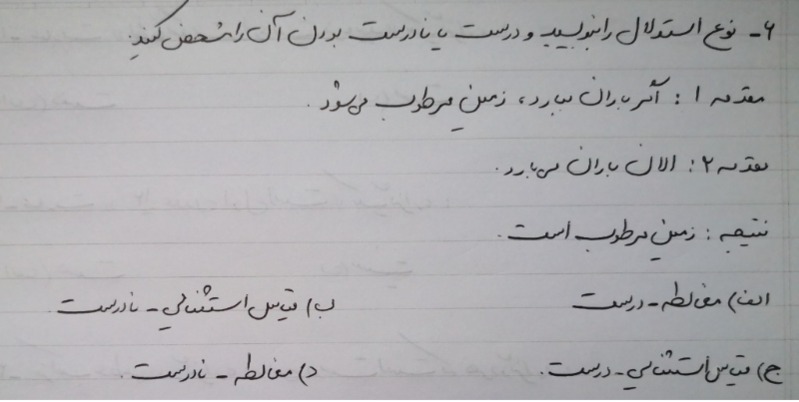 ۶- نوع استدلال را بنویسید و درست یا نادرست بودن آن را مشخص کنید.
مقدمه ۱: اگر باران ببارد، زمین مرطوب می‌شود.
مقدمه ۲: الان باران می‌بارد.
نتیجه: زمین مرطوب است.
الف) مغالطه - درست ب) قیاس استثنائی - نادرست
ج) قیاس استثنائی - درست. د) مغالطه - نادرست.